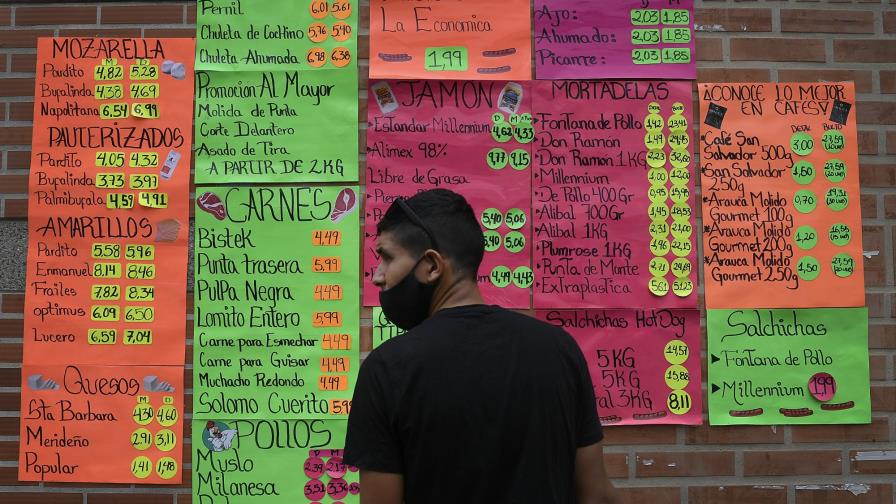 MOZARELLA
M D
Pardito 4,82 5,28
Bupalinda 4.38 4.69
Napolitana 6.54 6.99
PAUTERIZADOS
Pardito 4.05 4.32
Bupalinda 3.73 3.97
Palmibupala 4.59 4.91
AMARILLOS
Pardito 5.58 5.96
Enmanuel 8.14 8.46
Frailes 7.82 8.34
optimus 6.09 6.50
Lucero 6.59 7,04
Quesos
M D
Sta Barbara 4.30 4.60
Merideño 2.91 3,11
Popular 1.41 1.48
Pernil 6.01 5.61
Chuleta de Cochino 5,76 5,40
Chuleta Ahumada 6,98 6.38
Promoción Al Mayor
Molida de Punta
Corte Delantero
Asado de Tira
A PARTIR DE 2KG
CARNES
Bistek 4,49
Punta trasera 5,99
Pulpa Negra 4,49
Lomito Entero 5,99
Carne para Esmechar 4,49
Carne para Guisar 4,49
Muchacho Redondo 4,49
Solomo Cuerito
POLLOS
D M
Muslo 2.39
Milanesa 3,51
La Economica
1,99
JAMON
D M
Estandar Millennium 4,62 4,33
Alimex 98% 9,77 9,15
Libre de Grasa
5,40 5,06
5,40 5,06
4,49 4,43
D M
Ajo: 2,03 1,85
Ahumado: 2,03 1,85
Picante: 2,03 1,85
MORTADELAS
Fontana de Pollo 1,42 13,41
Don Ramón 1,49
Don Ramon 1KG 2,23 32,60
Millennium 1,00 12,00
De Pollo 400Gr 0,95
Alibal 700Gr 1,45 18,53
Alibal 1KG 2,31 21,00
Plumrose 1KG 1,96 22,15
Punta de Monte 2,71 29,69
Extraplastica 5,61 51,23
Salchichas Hot Dog
5KG 14,57
5KG 15,88
3KG 8,11
¡CONOCE LO MEJOR
EN CAFES!
DETAL BULTO
Café San
Salvador 500g 3,00 27,59
San Salvador
250g 1,50 27,59
Arauca Molido
Gourmet 100g 0,70 19,31
Arauca Molido
Gourmet 200g 1,20 16,55
Arauca Molido
Gourmet 250g 1,50
Salchichas
Fontana de Pollo
Millennium 1,99